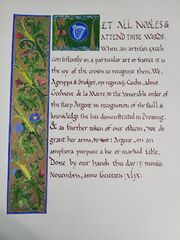 LET ALL NOBLES &
ATTEND THESE WORDS.
When an artisan excels
consistently in a particular art or science it
is the joy of the crown to recognize them. We,
Agrippa & Bridget, rex reginaque, Caidis, admit
Genevieve de la Mare, to the venerable order of
the Harp Argent in recognition of the skill &
knowledge she has demonstrated in Brewing
& as further token of our esteem, we do
grant her arms, to wit: Argent, on an
amphora purpure a bee or marked sable.
Done by our hands this day: pr nonis
Novembris, anno Societatis: xlix: